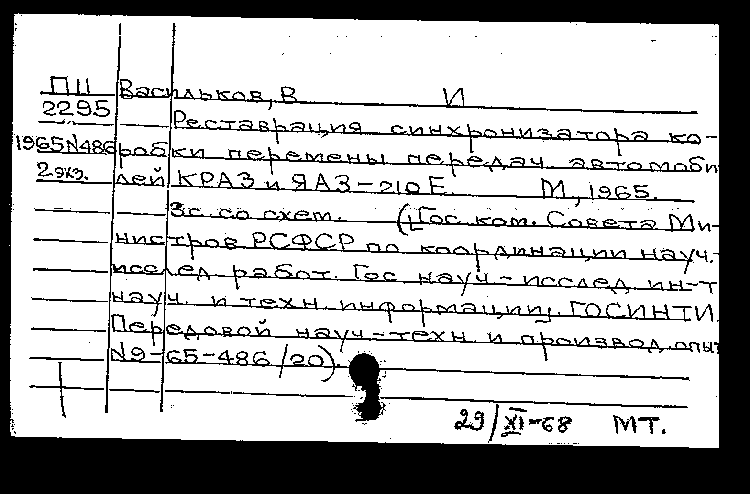 ПII Васильков, В И
2295 Реставрация синхронизатора ко-
1965N486 робки перемены передач автомоби
2 экз. лей КРАЗ и ЯАЗ-210Е. М, 1965.
3с. со схем. (Гос ком. Совета Ми-
нистров РСФСР по координации науч.-
исслед работ. Гос науч-исслед ин-т
науч. и техн информации, ГОСИНТИ.
Передовой науч-техн и производ. опыт
N9-65-486/20).
29/XI-68 МТ.